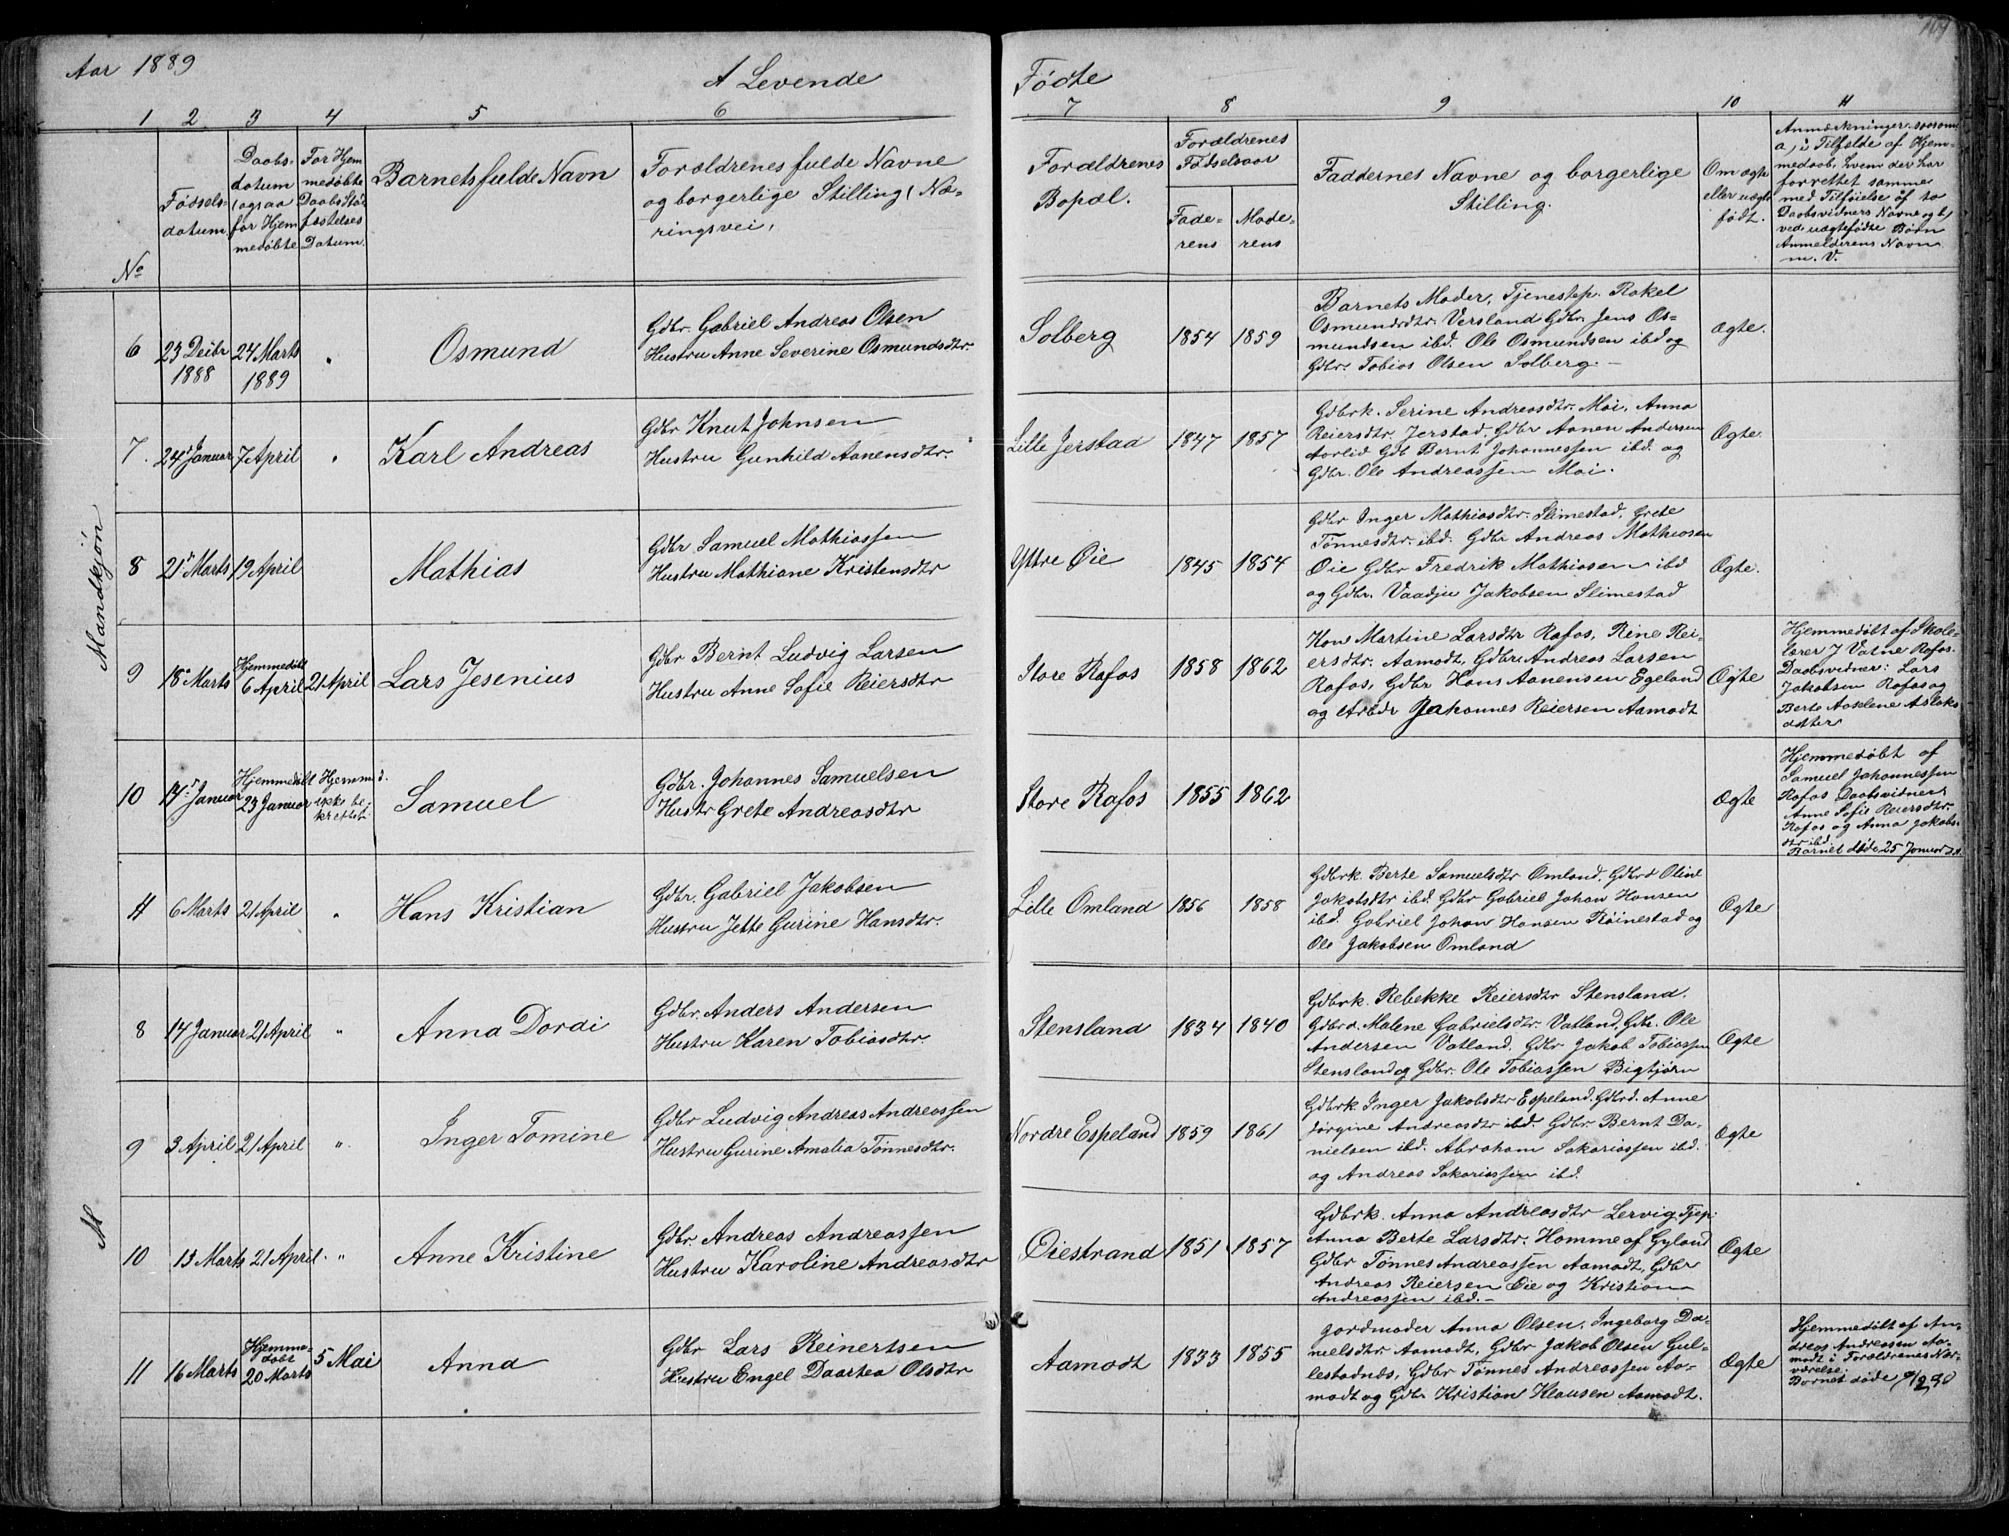 Aar 1889
A Levende
Fødte
1 2 3 4 5 6
7 8 9 10 11
No
Fødsels-
datum
Daabs-
datum
(ogsaa
for Hjem
medøbte
For Hjem
medøbte
Daabs Stad
fæstelses
Datum.
Barnets fulde Navn
Forældrenes fulde Navne
og borgerlige Stilling (Næ-
ringsvei,
Forældrenes
Bopæl.
Forældrenes
Fødselsaar
Fade-
rens
Mode-
rens
Faddernes Navne og borgerlige
Stilling.
Om ægte
eller uægte
født.
Anmærkninger saasom
a, i Tilfælde af Hjem-
medaab, hvem der har
forrettet samme
med Tilføielse af to
Daabsvidners Navne og b,
ved uægtefødte Børn
Anmelderens Navn
m. V.
Mandkjøn
6
23 Decbr
1888
24 Marts
1889
"
Osmund
Gdbr. Gabriel Andreas Olsen
Hustru Anne Severine Osmundsdtr.
Solberg
1854
1859
Barnets Moder, Tjenestep. Rakel
Osmundsdtr. Versland Gdbr. Jens Os-
mundsen ibd. Ole Osmundsen ibd og
Gdbr. Tobias Olsen Solberg.-
Ægte.
7.
24 Januar
7 April
"
Karl Andreas
Gdbr Knut Johnsen
Hustru Gunhild Aanensdtr.
Lille Jerstad
1847
1857
Gdbrk. Serine Andreasdtr. Moi, Anna
Reiersdtr. Jerstad. Gdbr Aanen Andersen
Aarlid Gdb Bernt Johannessen ibd. og
Gdbr. Ole Andreassen Moi.
Ægte.
8
21 Marts
19 April
Mathias
Gdbr Samuel Mathiassen
Hustru Mathiane Kristensdtr
Yttre Øie
1845
1854
Gdbr Inger Mathiasdtr. Slimestad, Grete
Tønnesdtr. ibd. Gdbr Andreas Mathiasen
Øie Gdbr Fredrik Mathiasen ibd
og Gdbr. Vaadju Jakobsen Slimestad
Ægte.
9
18 Marts
Hjemmedøbt
6 April
21 April
Lars Jesenius
Gdbr Bernt Ludvig Larsen
Hustru Anne Sofie Reiersdtr
Store Rafos
1858
1862
Kone Martine Larsdtr Rafos, Rine Rei-
ersdtr. Aamodt, Gdbr. Andreas Larsen
Rafos, Gdbr Hans Aanensen Egeland
og Arbdr Johannes Reiersen Aamodt
Ægte
Hjemmedøbt af Skole-
lærer J Vatne Rafos.
Daabsvidner: Lars
Jakobsen Rafos og
Berte Aaslene Aslaks
datter
10
14 Januar
Hjemmedøbt
23 Januar
Hjemmed.
ikke be-
kræftet
Samuel
Gdbr. Johannes Samuelsen
Hustr Grete Andreasdtr
Store Rafos
1855
1862
Ægte
Hjemmedøbt af
Samuel Johannessen
Rafos Daabsvidner
Anne Sofie Reiersdtr.
Rafos og Anna Jakobs-
dtr ibd.
Barnet døde 25 Januar d.A.
11
6 Marts
21 April
"
Hans Kristian
Gdbr. Gabriel Jakobsen
Hustru Jette Gurine Hansdtr.
Lille Omland
1856
1858
Gdbrk. Berte Samuelsdtr Omland. Gdbrd Oline
Jakobsdtr ibd. Gdbr Gabriel Johan Hansen
ibd. Gabriel Johan Hansen Røinestad og
Ole Jakobsen Omland
Ægte
8
14 Januar
21 April
"
Anna Dordi
Gdbr. Anders Andersen
Hustru Karen Tobiasdtr.
Stensland
1834
1840
Gdbrk. Rebekke Reiersdtr Stensland.
Gdbrd. Malene Gabrielsdtr. Vatland, Gdbr. Ole
Andersen Vatland. Gdbr Jakob Tobiassen
Stensland og Gdbr. Ole Tobiassen Bigtjørn
Ægte
9
3 April
21 April
"
Inger Tomine
Gdbr Ludvig Andreas Andreassen
Hustru Gurine Amalia Tønnesdtr.
Nordre Espeland
1859
1861
Gdbrk. Inger Jakobsdtr Espeland. Gdbrd. Anne
Jørgine Andreasdtr ibd. Gdbr Bernt Da-
nielsen ibd. Abraham Sakariassen ibd.
og Andreas Sakariassen ibd.
Ægte
K
10
13 Marts
21 April
"
Anne Kristine
Gdbr. Andreas Andreassen
Hustru Karoline Andreasdtr
Øiestrand
1851
1857
Gdbrk. Anna Andreasdtr Lervig, Tjep.
Anna Berte Larsdtr. Homme af Gyland
Gdbr Tønnes Andreassen Aamodt, Gdbr
Andreas Reiersen Øie og Kristian
Andreassen ibd.-
Ægte
11
16 Marts
Hjemme-
døbt
20 Marts
5 Mai
Anna
Gdbr Lars Reinertsen
Hustru Engel Daartea Olsdtr
Aamodt
1833
1855
Jordmoder Anna Olsen, Ingeborg Da-
nielsdtr Aamodt, Gdbr Jakob Olsen Gul-
lestadnæs, Gdbr Tønnes Andreassen Aa-
modt og Gdbr Kristian Klausen Aamodt.
Ægte
Hjemmedøbt af An-
dreas Andreassen Aa-
modt i Forældrenes Nær-
værelse.
Barnet døde